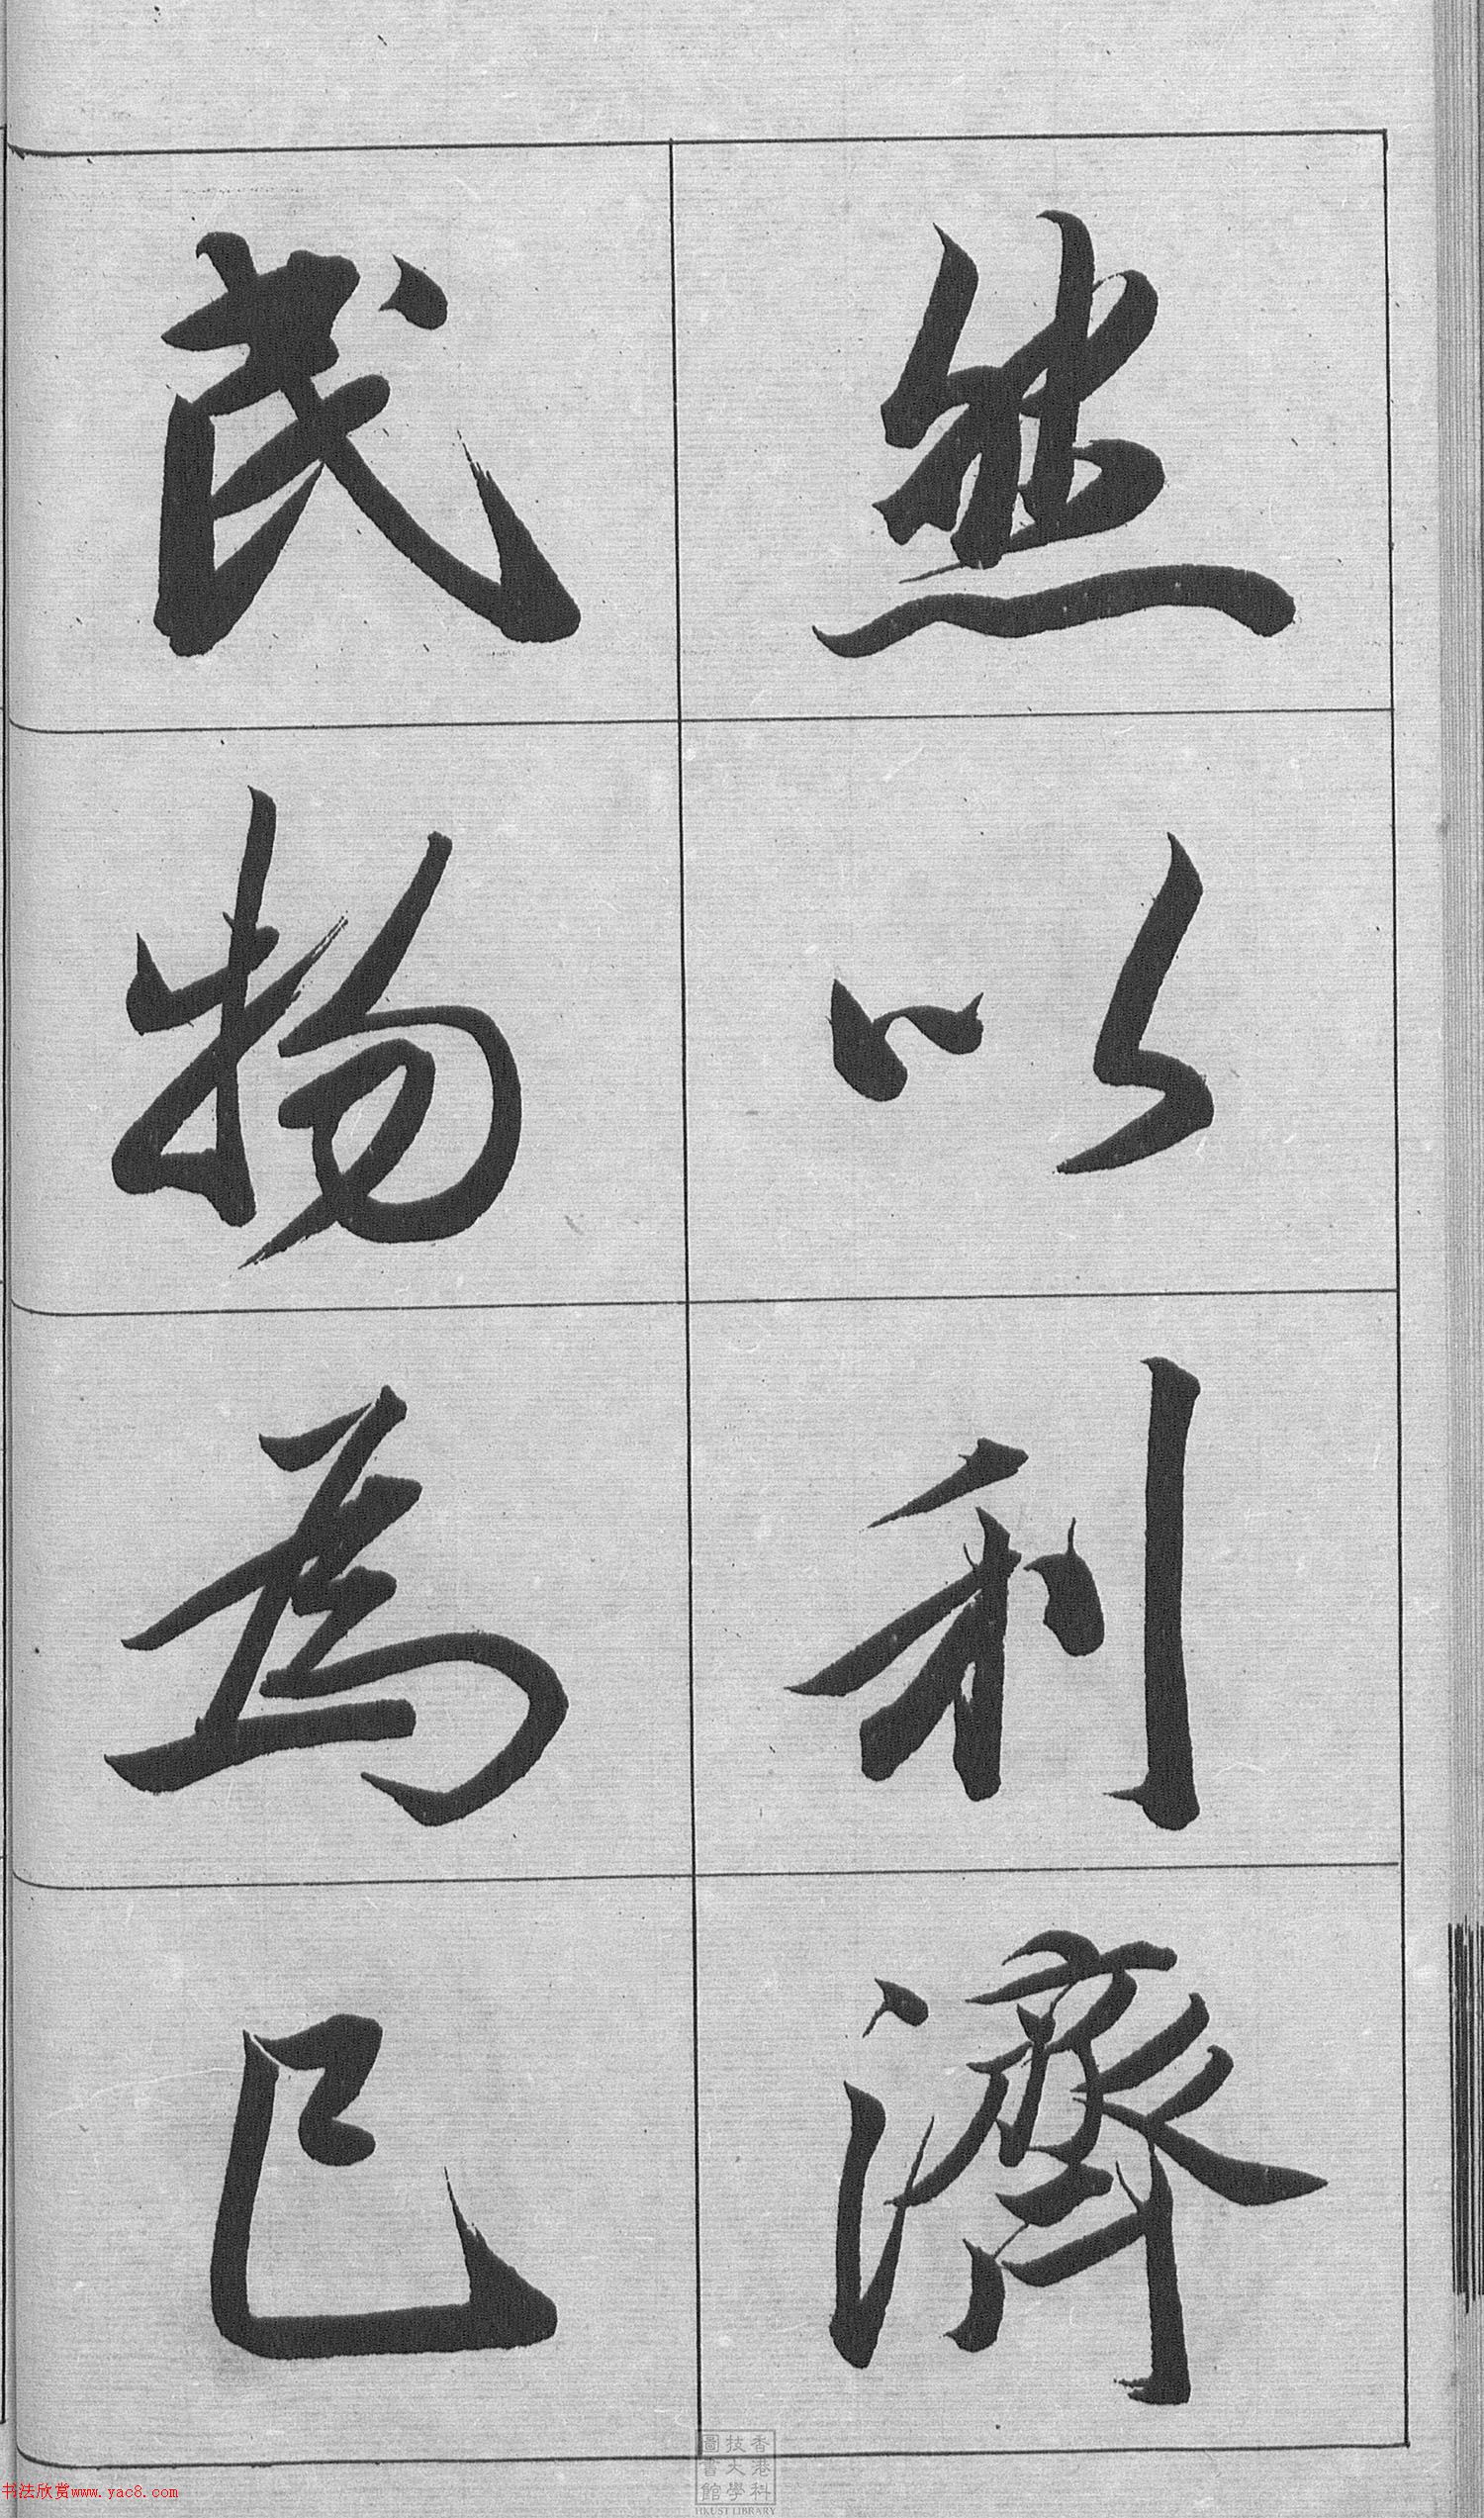 然以利濟
民物爲己
香港科
技大學
圖書館
HKUST LIBRARY
书法欣赏www.yac8.com